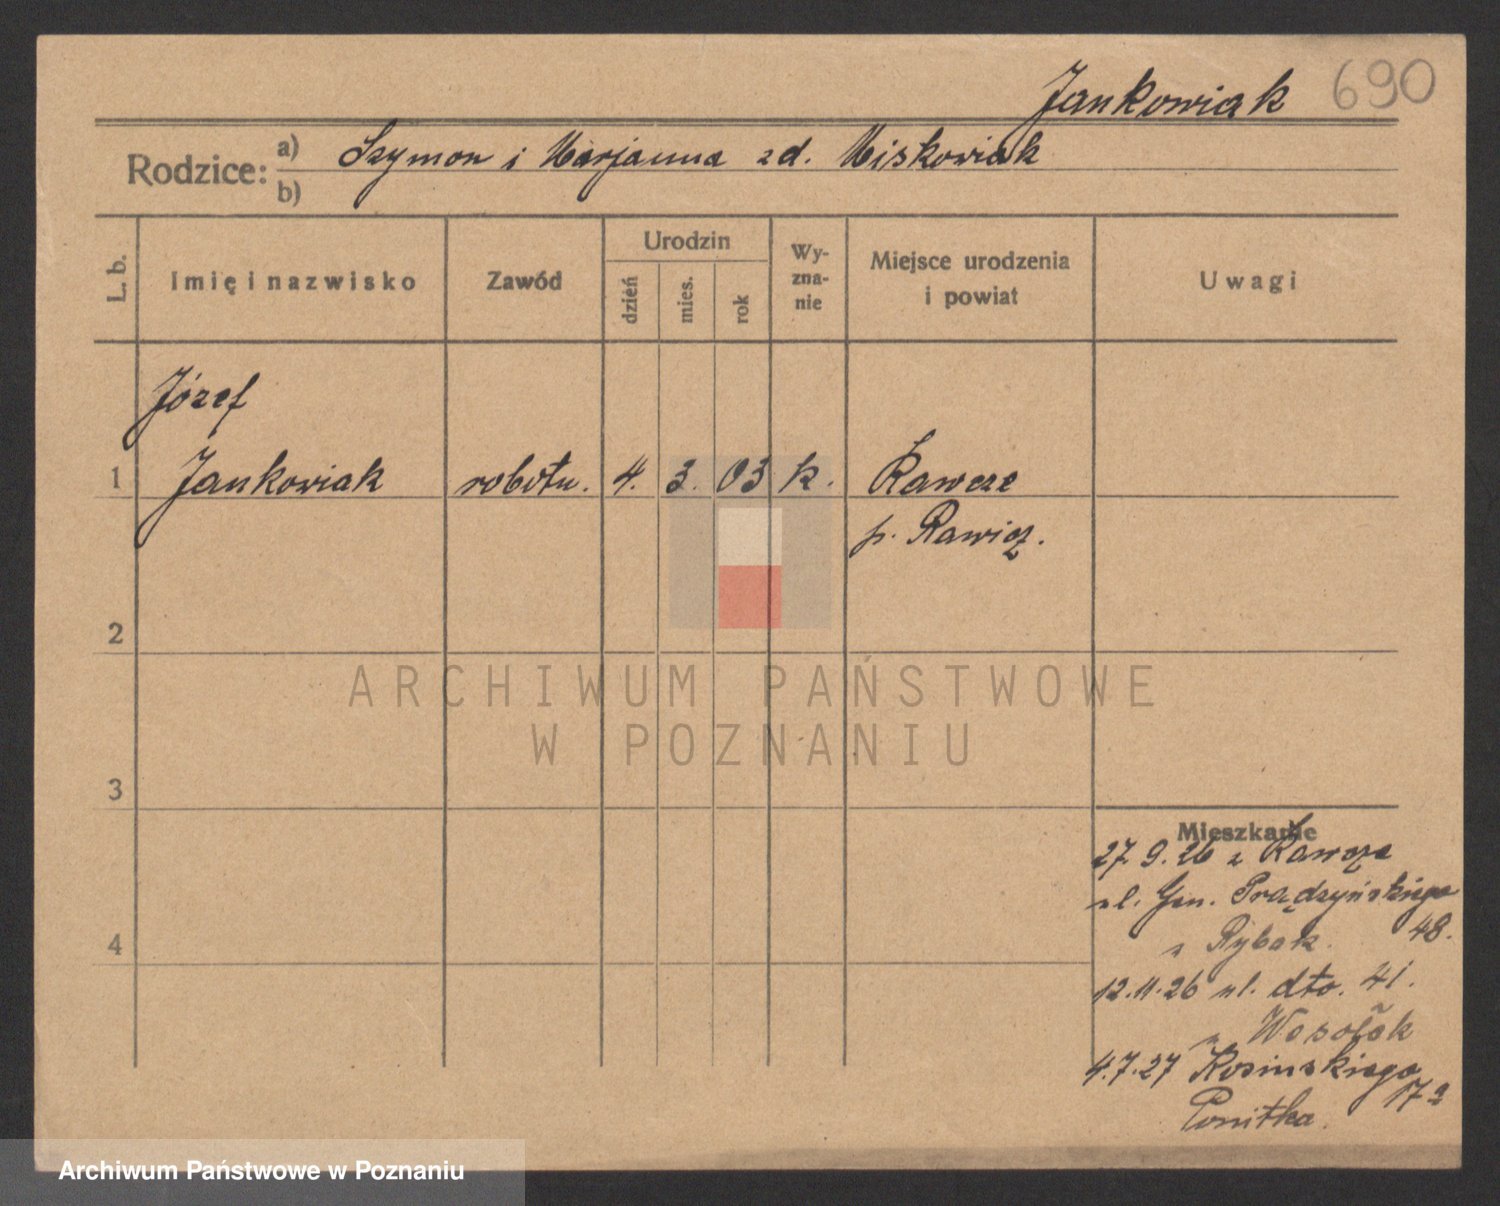 Jankowiak 690
Rodzice: a) Szymon i Marjanna zd. Miskowiak
b)
L. b.
Imię i nazwisko
Zawód
Urodzin
dzień
mies.
rok
Wy-
zna-
nie
Miejsce urodzenia
i powiat
Uwagi
Józef
1 Jankowiak robotn. 4. 3. 03 k.
p. Rawicz.
2
ARCHIWUM PAŃSTWOWE
W POZNANIU
3
Mieszkanie
27.9.26 z
ul. Gen. Prądzyńskiego
48.
Rybak.
4
12.11.26 ul. dto. 41.
4.7.27 Kosinskiego
17a
Ponitka.
Archiwum Państwowe w Poznaniu